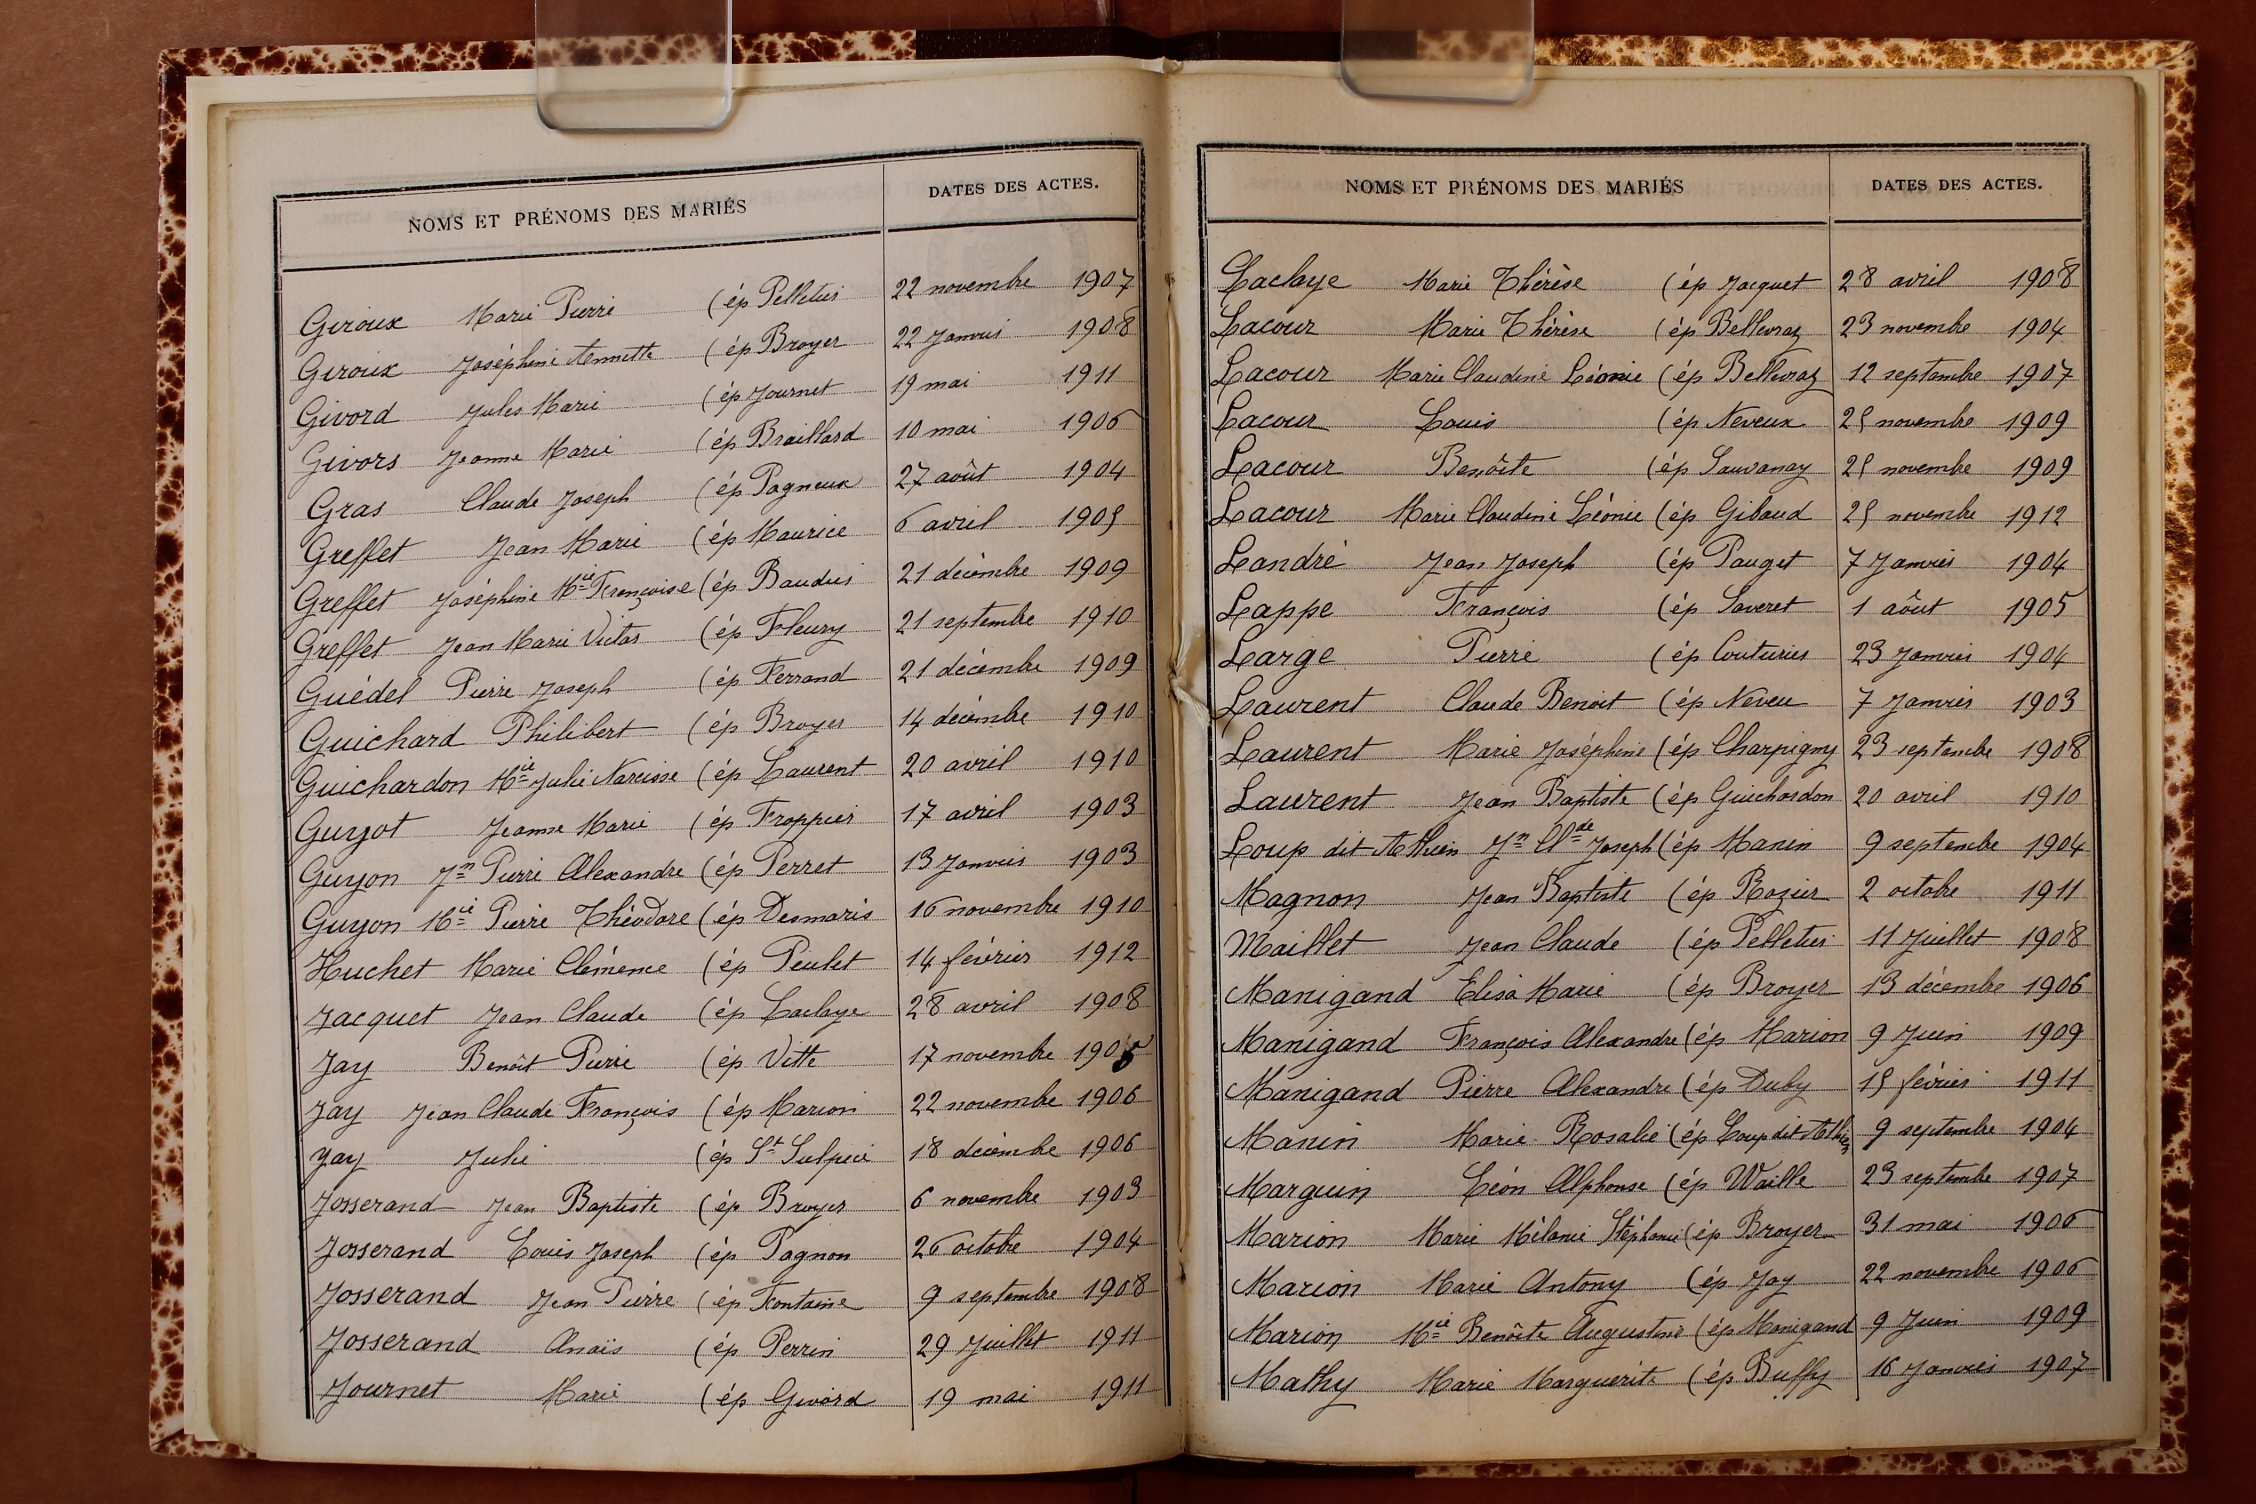 NOMS ET PRÉNOMS DES MARIÉS DATES DES ACTES.
Giroux Marie Pierre (ép Pelletier 22 novembre 1907
Giroux Joséphine Annette (ép Broyer 22 Janvier 1908
Givord Jules Marie (ép Journet 19 mai 1911
Givors Jeanne Marie (ép Braillard 10 mai 1906
Gras Claude Joseph (ép Pagneux 27 août 1904
Greffet Jean Marie (ép Maurice 6 avril 1905
Greffet Joséphine Mie Françoise (ép Baudier 21 décembre 1909
Greffet Jean Marie Victor (ép Fleury 21 septembre 1910
Guédel Pierre Joseph (ép Ferrand 21 décembre 1909
Guichard Philibert (ép Broyer 14 décembre 1910
Guichardon Mie Julie Narcisse (ép Laurent 20 avril 1910
Guyot Jeanne Marie (ép Froppier 17 avril 1903
Guyon Jn Pierre Alexandre (ép Perret 13 Janvier 1903
Guyon Mie Pierre Théodore (ép Desmaris 16 novembre 1910
Huchet Marie Clémence (ép Peulet 14 février 1912
Jacquet Jean Claude (ép Laclaye 28 avril 1908
Jay Benoît Pierre (ép Vitte 17 novembre
Jay Jean Claude François (ép Marion 22 novembre 1906
Jay Julie (ép St Sulpice 18 décembre 1906
Josserand Jean Baptiste (ép Broyer 6 novembre 1903
Josserand Louis Joseph (ép Pagnon 26 octobre 1904
Josserand Jean Pierre (ép Fontaine 9 septembre 1908
Josserand Anaïs (ép Perrin 29 Juillet 1911
Journet Marie (ép Givord 19 mai 1911
NOMS ET PRÉNOMS DES MARIÉS DATES DES ACTES.
Laclaye Marie Thérèse (ép Jacquet 28 avril 1908
Lacour Marie Thérèse (ép Bellevraz 23 novembre 1904
Lacour Marie Claudine Léonie (ép Bellevraz 12 septembre 1907
Lacour Louis (ép Neveux 25 novembre 1909
Lacour Benôite (ép Sauvanay 25 novembre 1909
Lacour Marie Claudine Léonie (ép Gibaud 25 novembre 1912
Landré Jean Joseph (ép Pauget 7 Janvier 1904
Lappe François (ép Saveret 1 aôut 1905
Large Pierre (ép Couturier 23 Janvier 1904
Laurent Claude Benoit (ép Neveu 7 Janvier 1903
Laurent Marie Joséphine (ép Charpigny 23 septembre 1908
Laurent Jean Baptiste (ép Guichardon 20 avril 1910
Loup dit Jn Clde Joseph (ép Manin 9 septembre 1904
Magnon Jean Baptiste (ép Rozier 2 octobre 1911
Maillet Jean Claude (ép Pelletier 11 Juillet 1908
Manigand Elisa Marie (ép Broyer 13 décembre 1906
Manigand François Alexandre (ép Marion 9 Juin 1909
Manigand Pierre Alexandre (ép Duby 15 février 1911
Manin Marie Rosalie (ép Loup dit 9 septembre 1904
Marguin Léon Alphonse (ép Waille 23 septembre 1907
Marion Marie Mélanie Stéphanie (ép Broyer 31 mai 1906
Marion Marie Antony (ép Jay 22 novembre 1906
Marion Mie Benôite Augustine (ép Manigand 9 Juin 1909
Mathy Marie Marguerite (ép Buffy 16 Janvier 1907